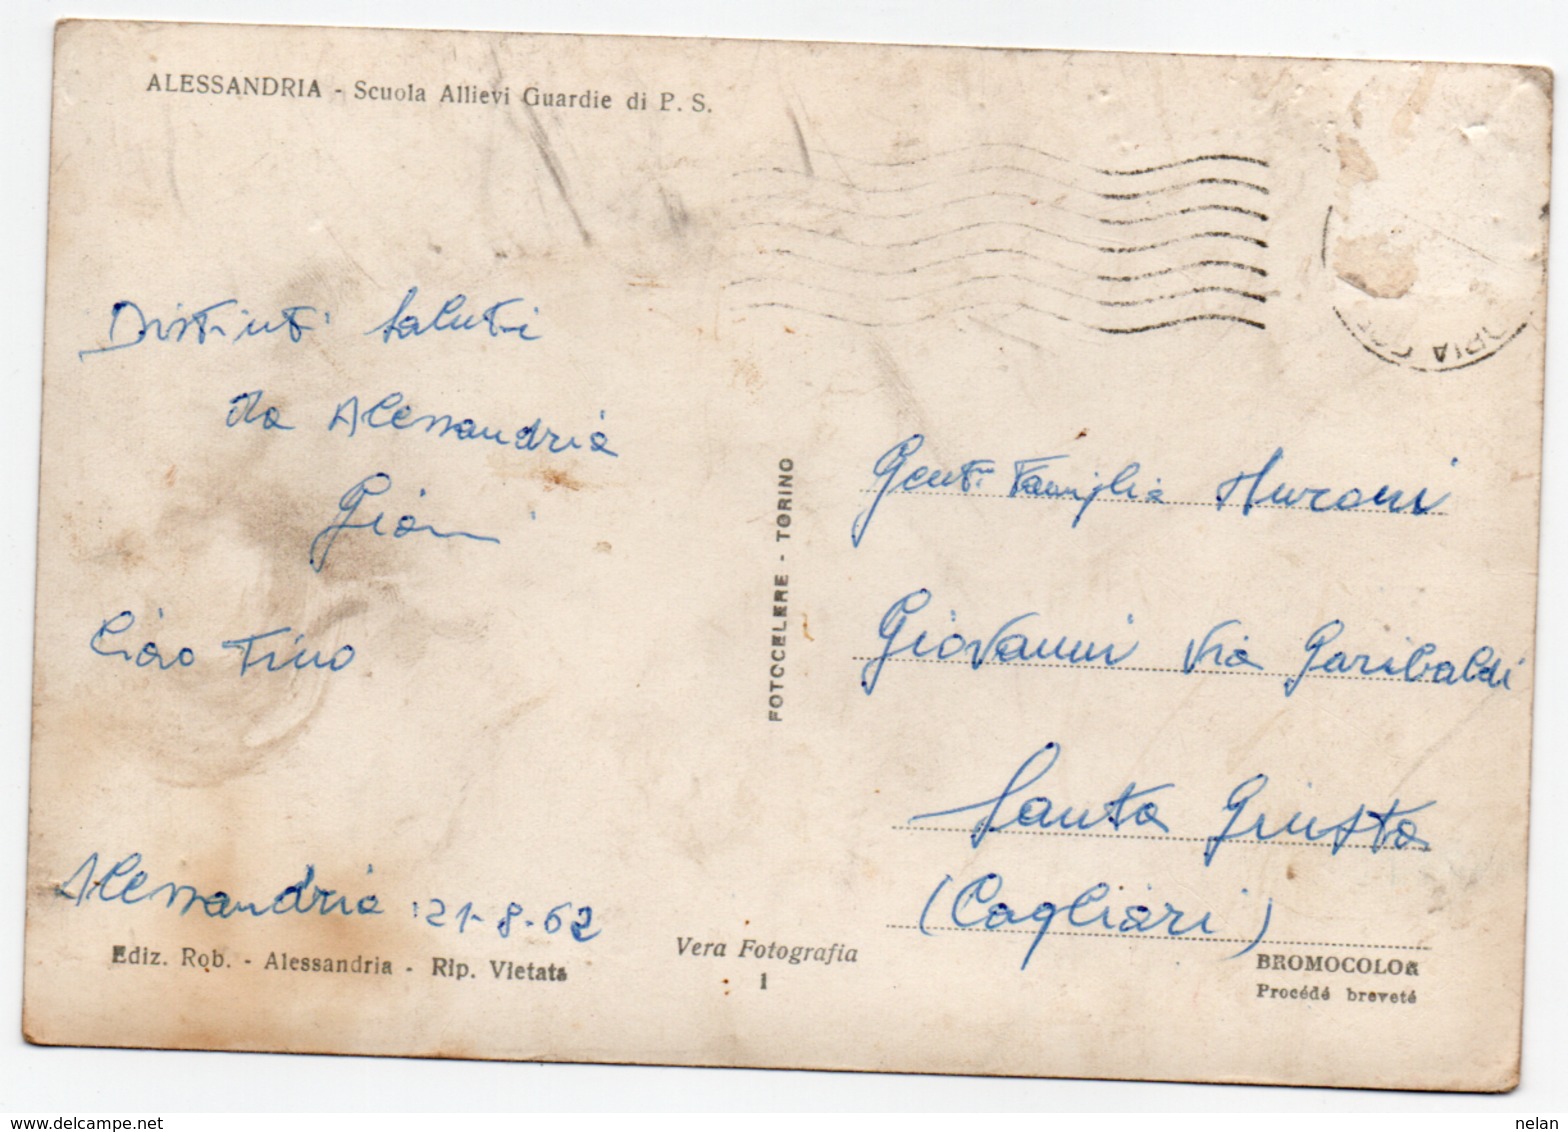 ALESSANDRIA - Scuola Allievi Guardie di P. S.
Distinti saluti
da Alessandria
Ciao Tino
Alessandria 21-8-62
Ediz. Rob. - Alessandria - Rip. Vietata
Vera Fotografia
1
FOTOCELERE - TORINO
Gent. Famiglia
Giovanni Via Garibaldi
Santa Giusta
(Cagliari)
BROMOCOLOR
Procédé breveté
nelan